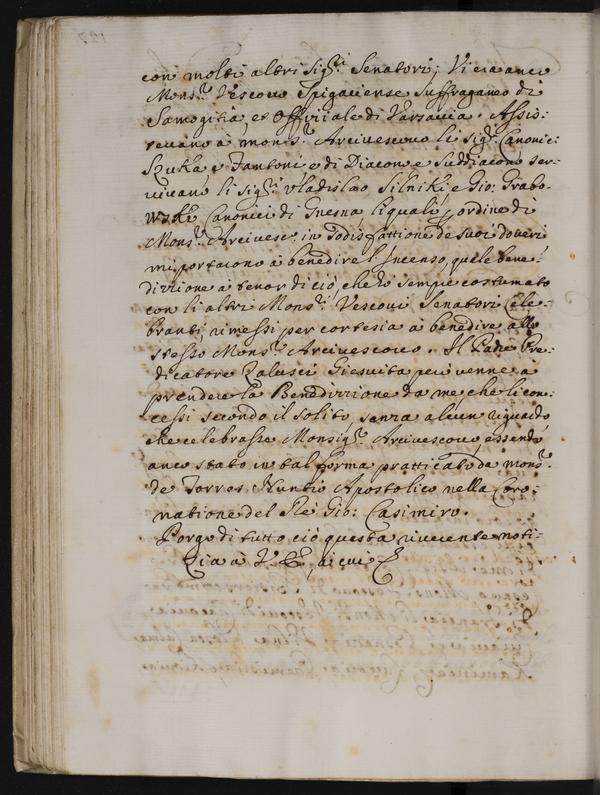 con molti altri sig.ri Senatori; Vi era anco
Mons.r Vescovo Spigaciense Suffraganeo di
Samogitia, et Offitiale di Varsavia. Assis-
tevano à mons.r Arcivescovo li sig.ri Canonici
Szuka, e Fantoni e di Diacono e Suddiacono ser-
vivano li sig.ri Vladislao Silniki e Gio: Grabo-
wski Canonici di Gnesna, li quali, ordine di
Mons.r Arcivesc.o in sodisfattione de suoi doveri
mi portarono à benedire l'Incenso, quale bene-
dizzione à tenor di ciò, che hò sempre costumato
con li altri Mons.ri Vescovi Senatori Cele-
branti, rimessi per cortesia à benedire allo
stesso Mons.r Arcivescovo. Il Padre Pre-
dicatore Zalusci Giesuita però venne à
prendere la Benedizzione da me che li con-
cessi secondo il solito, senza alcun riguardo
che celebrasse Monsig.r Arcivescovo, essendo
anco stato in tal forma pratticato da mons.r
de Torres Nuntio Apostolico nella Coro-
natione del Rè Gio: Casimiro.
Porgo di tutto ciò questa riverente noti-
zia à V. E., à cui